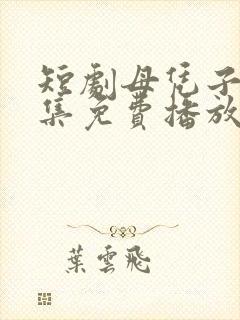 短劇母凭子
集免費播放
葉雲飛